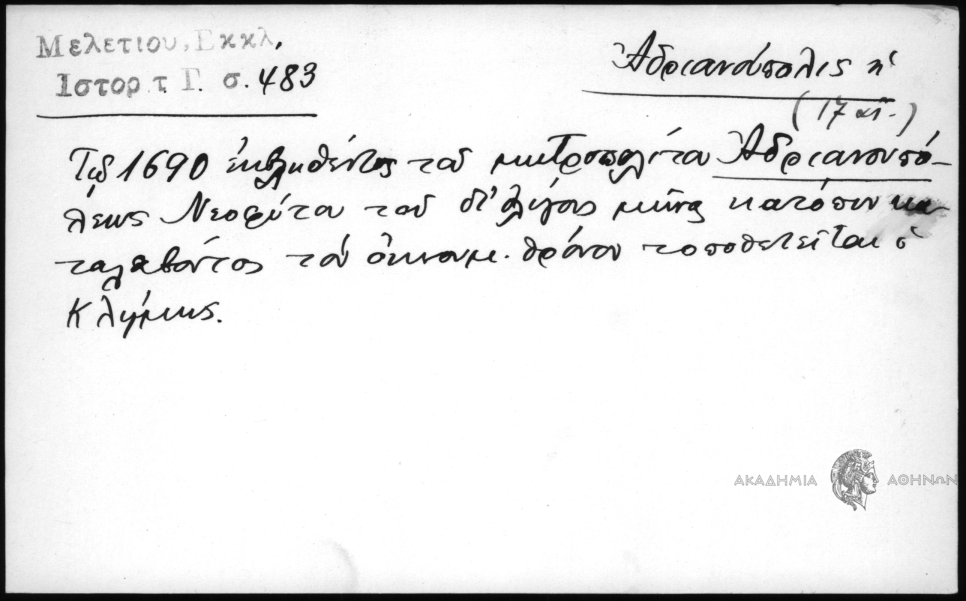 Μελετίου, Εκκλ.
Ιστορ τ Γ. σ. 483
Ἀδριανούπολις ἡ
(17 αἰ.)
Τῷ 1690 ἐκβληθέντος τοῦ μητροπολίτου Ἀδριανουπό-
λεως Νεοφύτου τοῦ δι' ὀλίγους μῆνας κατόπιν κα-
ταλαβόντος τὸν οἰκουμ. θρόνον τοποθετεῖται ὁ
Κλήμης.
ΑΚΑΔΗΜΙΑ ΑΘΗΝΩΝ